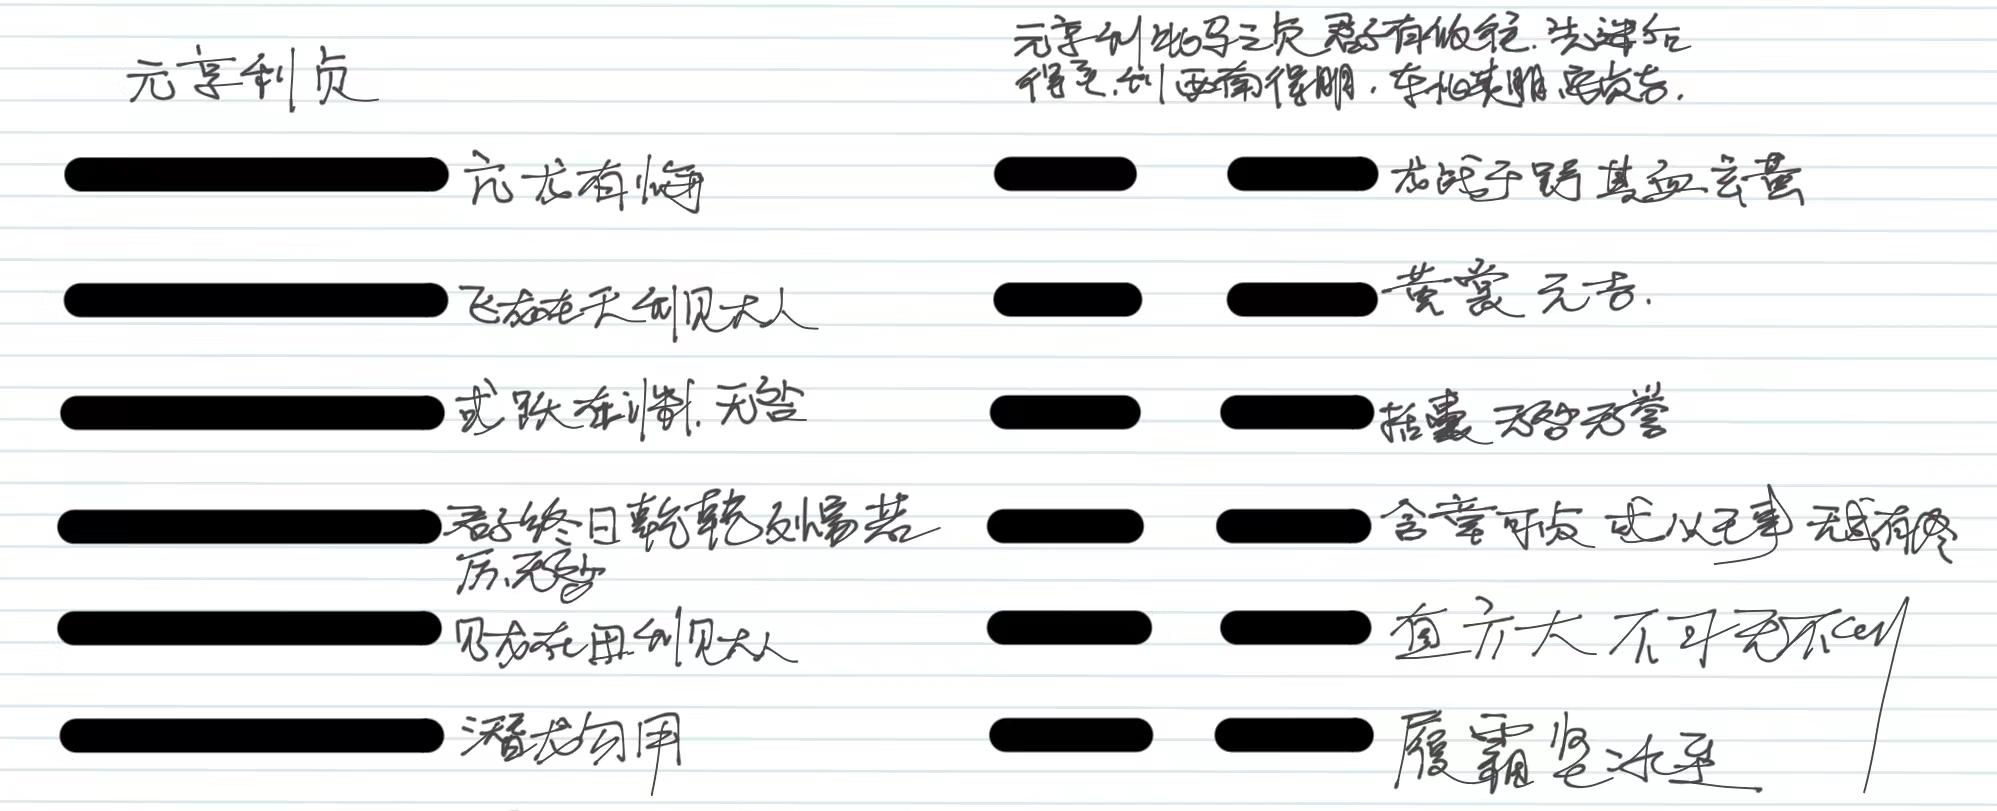 元亨利贞
亢龙有悔
飞龙在天利见大人
或跃在渊.无咎
君子终日乾乾夕惕若
厉.无咎
见龙在田利见大人
潜龙勿用
元亨利牝马之贞 君子有攸往.先迷后
得主.利西南得朋.东北丧朋.安贞吉.
龙战于野 其血玄黄
黄裳 元吉.
括囊 无咎无誉
含章可贞 或从王事 无成有终
直方大 不习无不利
履霜坚冰至